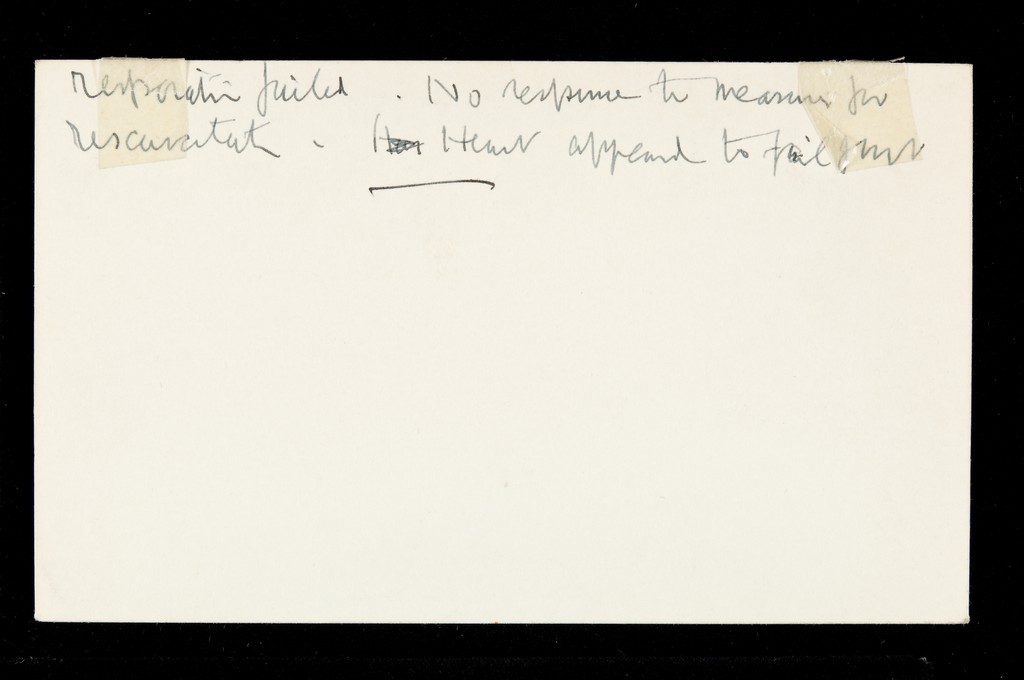 respiration failed. No response to measures for
rescucitation. Heart appeared to fail first